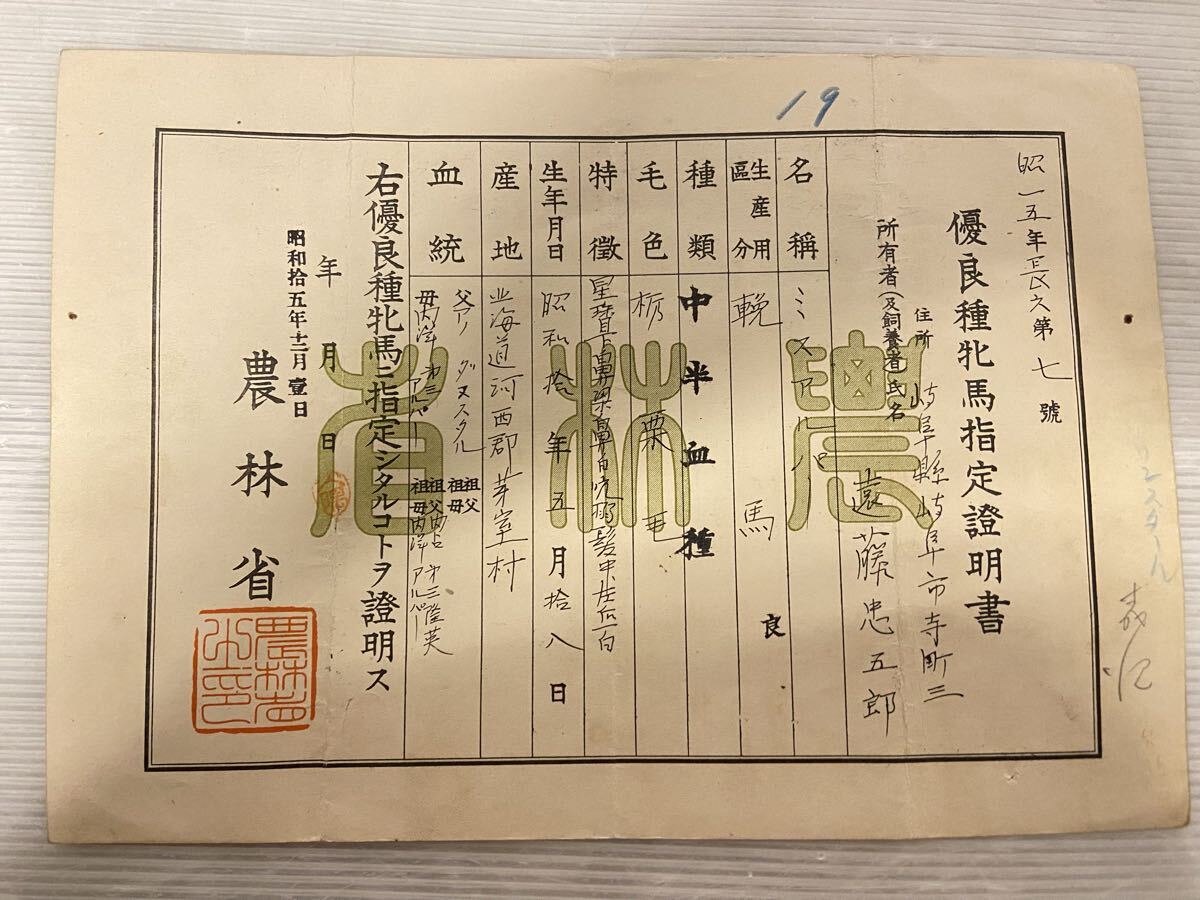 19
昭一五年長文第七號
優良種牝馬指定證明書
住所 岐阜縣岐阜市寺町三
所有者(及飼養者)氏名 遠藤忠五郎
名稱 ミスアルパ
生産用區分 輓馬 良
種類 中半血種
毛色 栃栗毛
特徵 星 鼻梁鼻白 髪中 左后一白
生年月日 昭和拾年五月拾八日
産地 北海道河西郡芽室村
血統 父アノ ダヌスタル 祖父 祖母
母内洋 第三アルパー 祖父内 第三 英 祖母内洋 アルパー
右優良種牝馬ニ指定シタルコトヲ證明ス
年 月 日
昭和拾五年十二月壹日
農林省
農林省
農林省之印